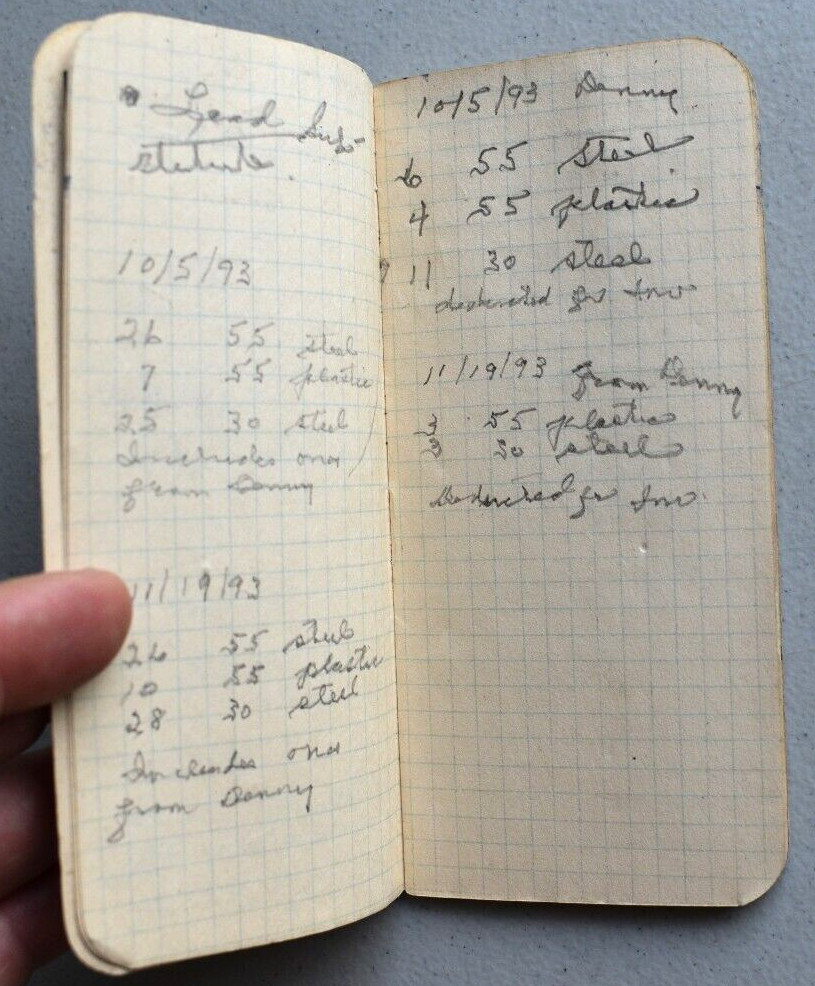 Lead Sub-
stitute
10/5/93
26 55 steel
7 55 plastic
25 30 steel
Includes ona
from Denny
11/19/93
26 55 steel
10 55 plastic
28 30 steel
Includes ona
from Denny
10/5/93 Denny
6 55 steel
4 55 plastic
11 30 steel
deducted fr Inv
11/19/93 from Denny
3 55 plastic
3 30 steel
Deducted fr Inv.